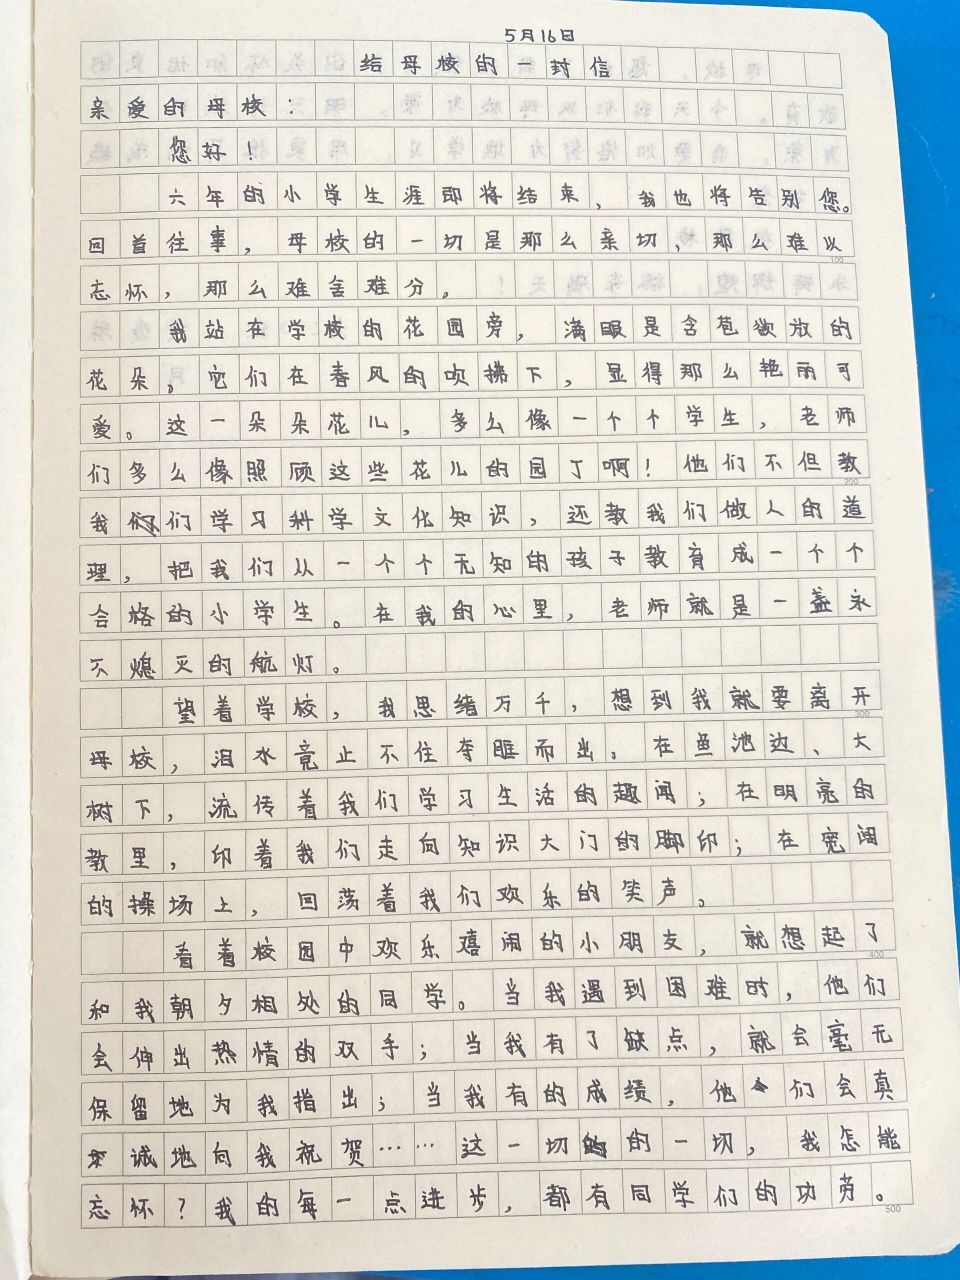 5月16日
给母校的一封信
亲爱的母校：
您好！
六年的小学生涯即将结束，我也将告别您。
回首往事，母校的一切是那么亲切，那么难以
100
忘怀，那么难舍难分。
我站在学校的花园旁，满眼是含苞欲放的
花朵。它们在春风的吹拂下，显得那么艳丽可
爱。这一朵朵花儿，多么像一个个学生，老师
们多么像照顾这些花儿的园丁啊！他们不但教
200
我们学习科学文化知识，还教我们做人的道
理，把我们从一个个无知的孩子教育成一个个
合格的小学生。在我的心里，老师就是一盏永
不熄灭的航灯。
望着学校，我思绪万千，想到我就要离开
300
母校，泪水竟止不住夺眶而出。在鱼池边、大
树下，流传着我们学习生活的趣闻；在明亮的
教里，印着我们走向知识大门的脚印；在宽阔
的操场上，回荡着我们欢乐的笑声。
看着校园中欢乐嘻闹的小朋友，就想起了
400
和我朝夕相处的同学。当我遇到困难时，他们
会伸出热情的双手；当我有了缺点，就会毫无
保留地为我指出；当我有的成绩，他们会真
诚地向我祝贺……这一切的一切，我怎能
忘怀？我的每一点进步，都有同学们的功劳。
500